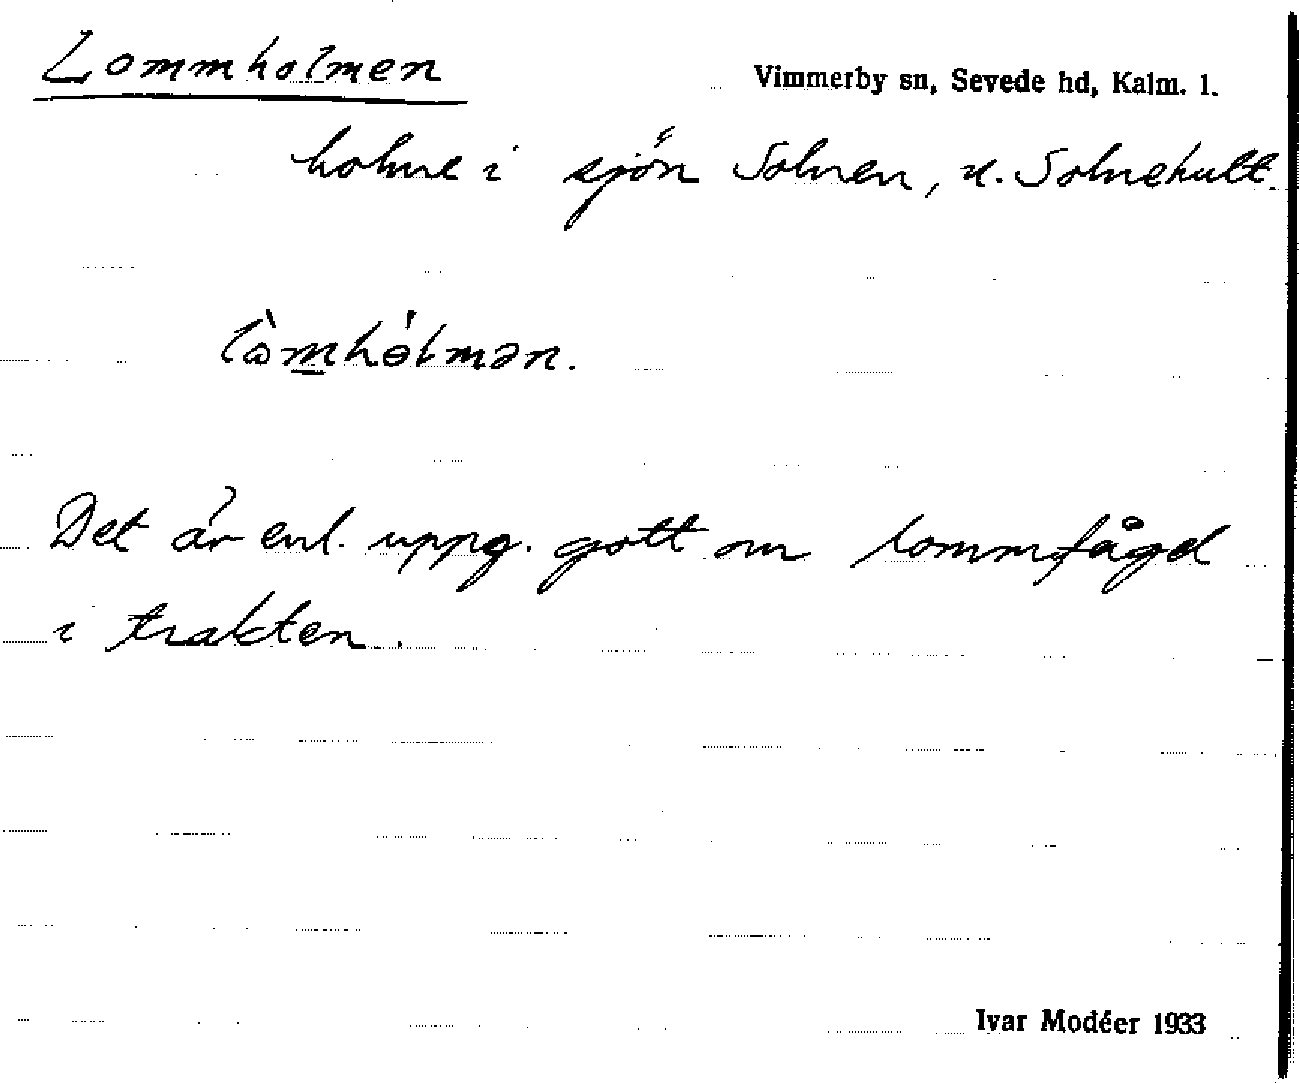 Lommholmen
Vimmerby sn, Sevede hd, Kalm. l.
holme i sjön Solnen, u. Solnehult.
lòmhólmən.
Det är enl. uppg. gott om lommfågel
i trakten.
Ivar Modéer 1933